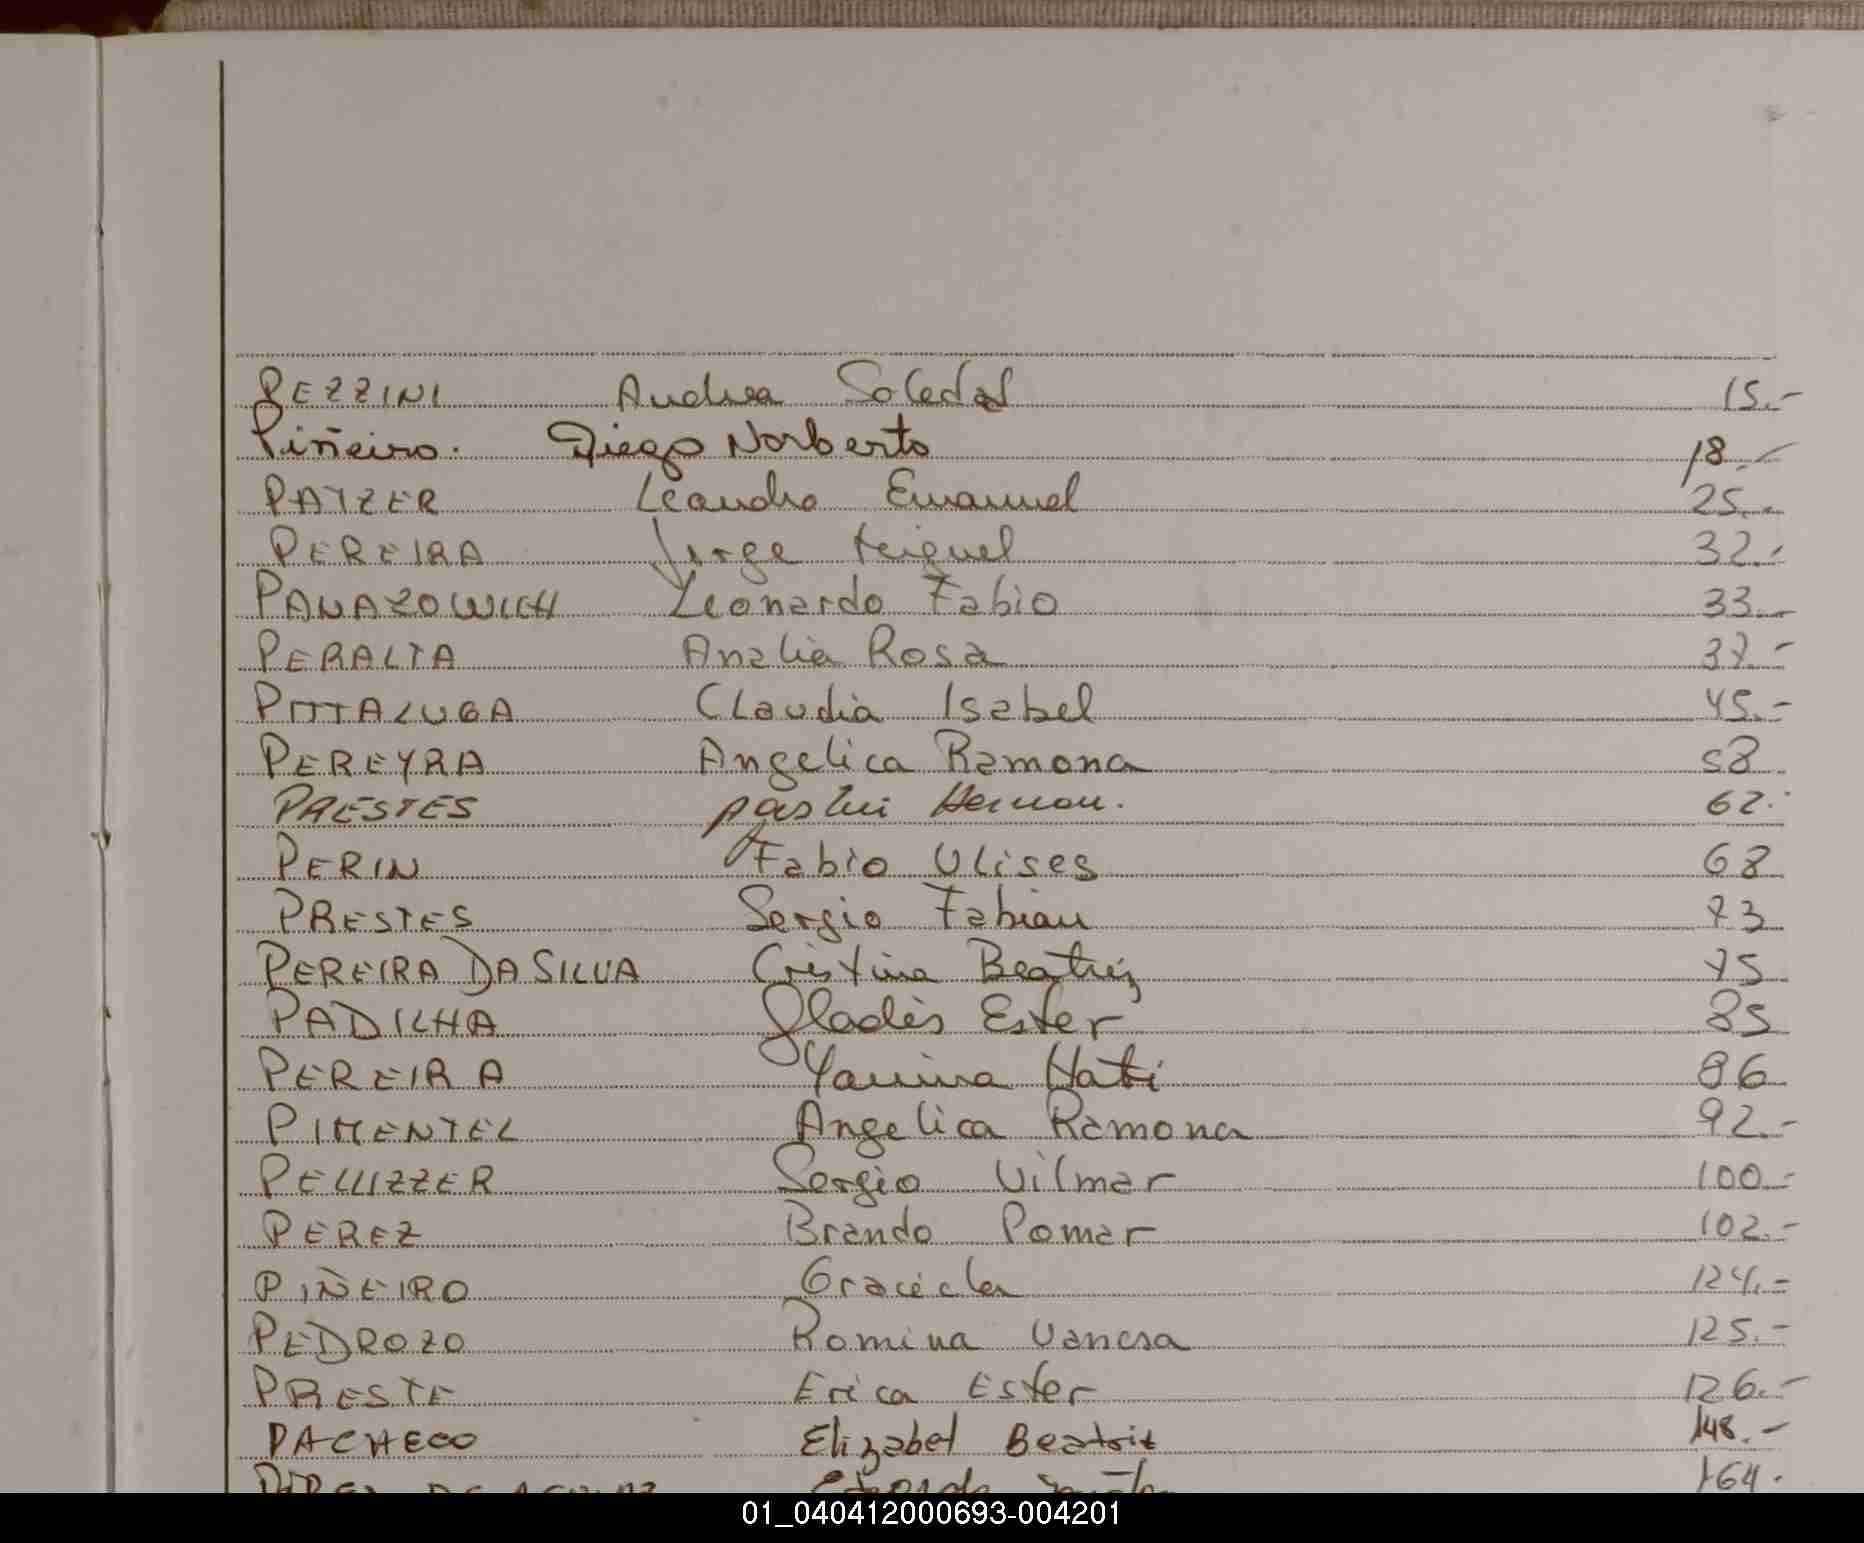 PEZZINI Andrea Soledad 15.-
Piñeiro. Diego Norberto 18.-
PATZER Leandro Emanuel 25.-
PEREIRA Jorge Miguel 32.-
PANAZOWICH Leonardo Fabio 33.-
PERALTA Analia Rosa 37.-
PITTALUGA Claudia Isabel 45.-
PEREYRA Angelica Ramona 58
PRESTES Hernan. 62.
PERIN Fabio Ulises 68
PRESTES Sergio Fabian 73
PEREIRA DA SILVA Cristina Beatriz 75
PADILHA Gladis Ester 85
PEREIRA Yanina Hati 86
PIMENTEL Angelica Ramona 92.-
PELLIZZER Sergio Vilmar 100.-
PEREZ Brando Pomar 102.-
PIÑEIRO Graciela 124.-
PEDROZO Romina Vanesa 125.-
PRESTE Erica Ester 126.-
PACHECO Elizabet Beatriz 148.-
164.
01_040412000693-004201